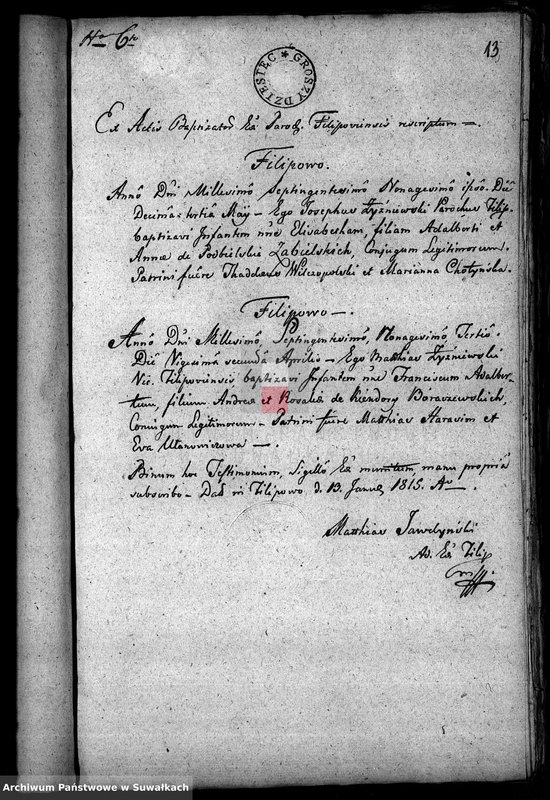 No 6to
13
GROSZY DZIESIĘC
Ex Actis Baptizator Ecc Paroch. Filipoviensis rescriptum —.
Filipowo.
Anno Dni Millesimo Septingentesimo Nonagesimo ipso. Die
Decima=tertia Maÿ — Ego Josephus Łyźniewski Parochus Filip.
baptizavi Infantem nne Elisabetham, filiam Adalberti et
Annæ de Podbielskie Zabielskich, Conjugum Legitimorum.
Patrini fuêre Thaddæus Wilczopolski et Marianna Chotyńska.
Filipowo —.
Anno Dni Millesimo, Septingentesimo, Nonagesimo, Tertio.
Die Vigesima secunda Aprilis — Ego Matthias Łyźniewski
Vic. Filipoviensis baptizavi Infantem nne Franciscum Adalber-
tum, filium Andreæ et Rosaliæ de Baraszewskich,
Conjugum Legitimorum — Patrini fuêre Matthias Harasim et
Eva Ułanowiczowa —.
Binum hoc Testimonium, Sigillo Ecc munitum, manu propria
subscribo — Dat in Filipowo d. 13. Januar 1815. A —.
Matthias Jawdyński
Ad. Ecc Filip
mpp
Archiwum Państwowe w Suwałkach